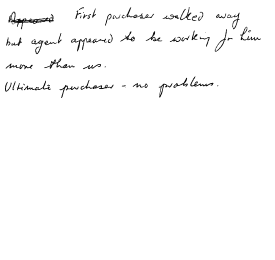 First purchaser walked away
but agent appeared to be working for him
more than us.
Ultimate purchaser - no problems.